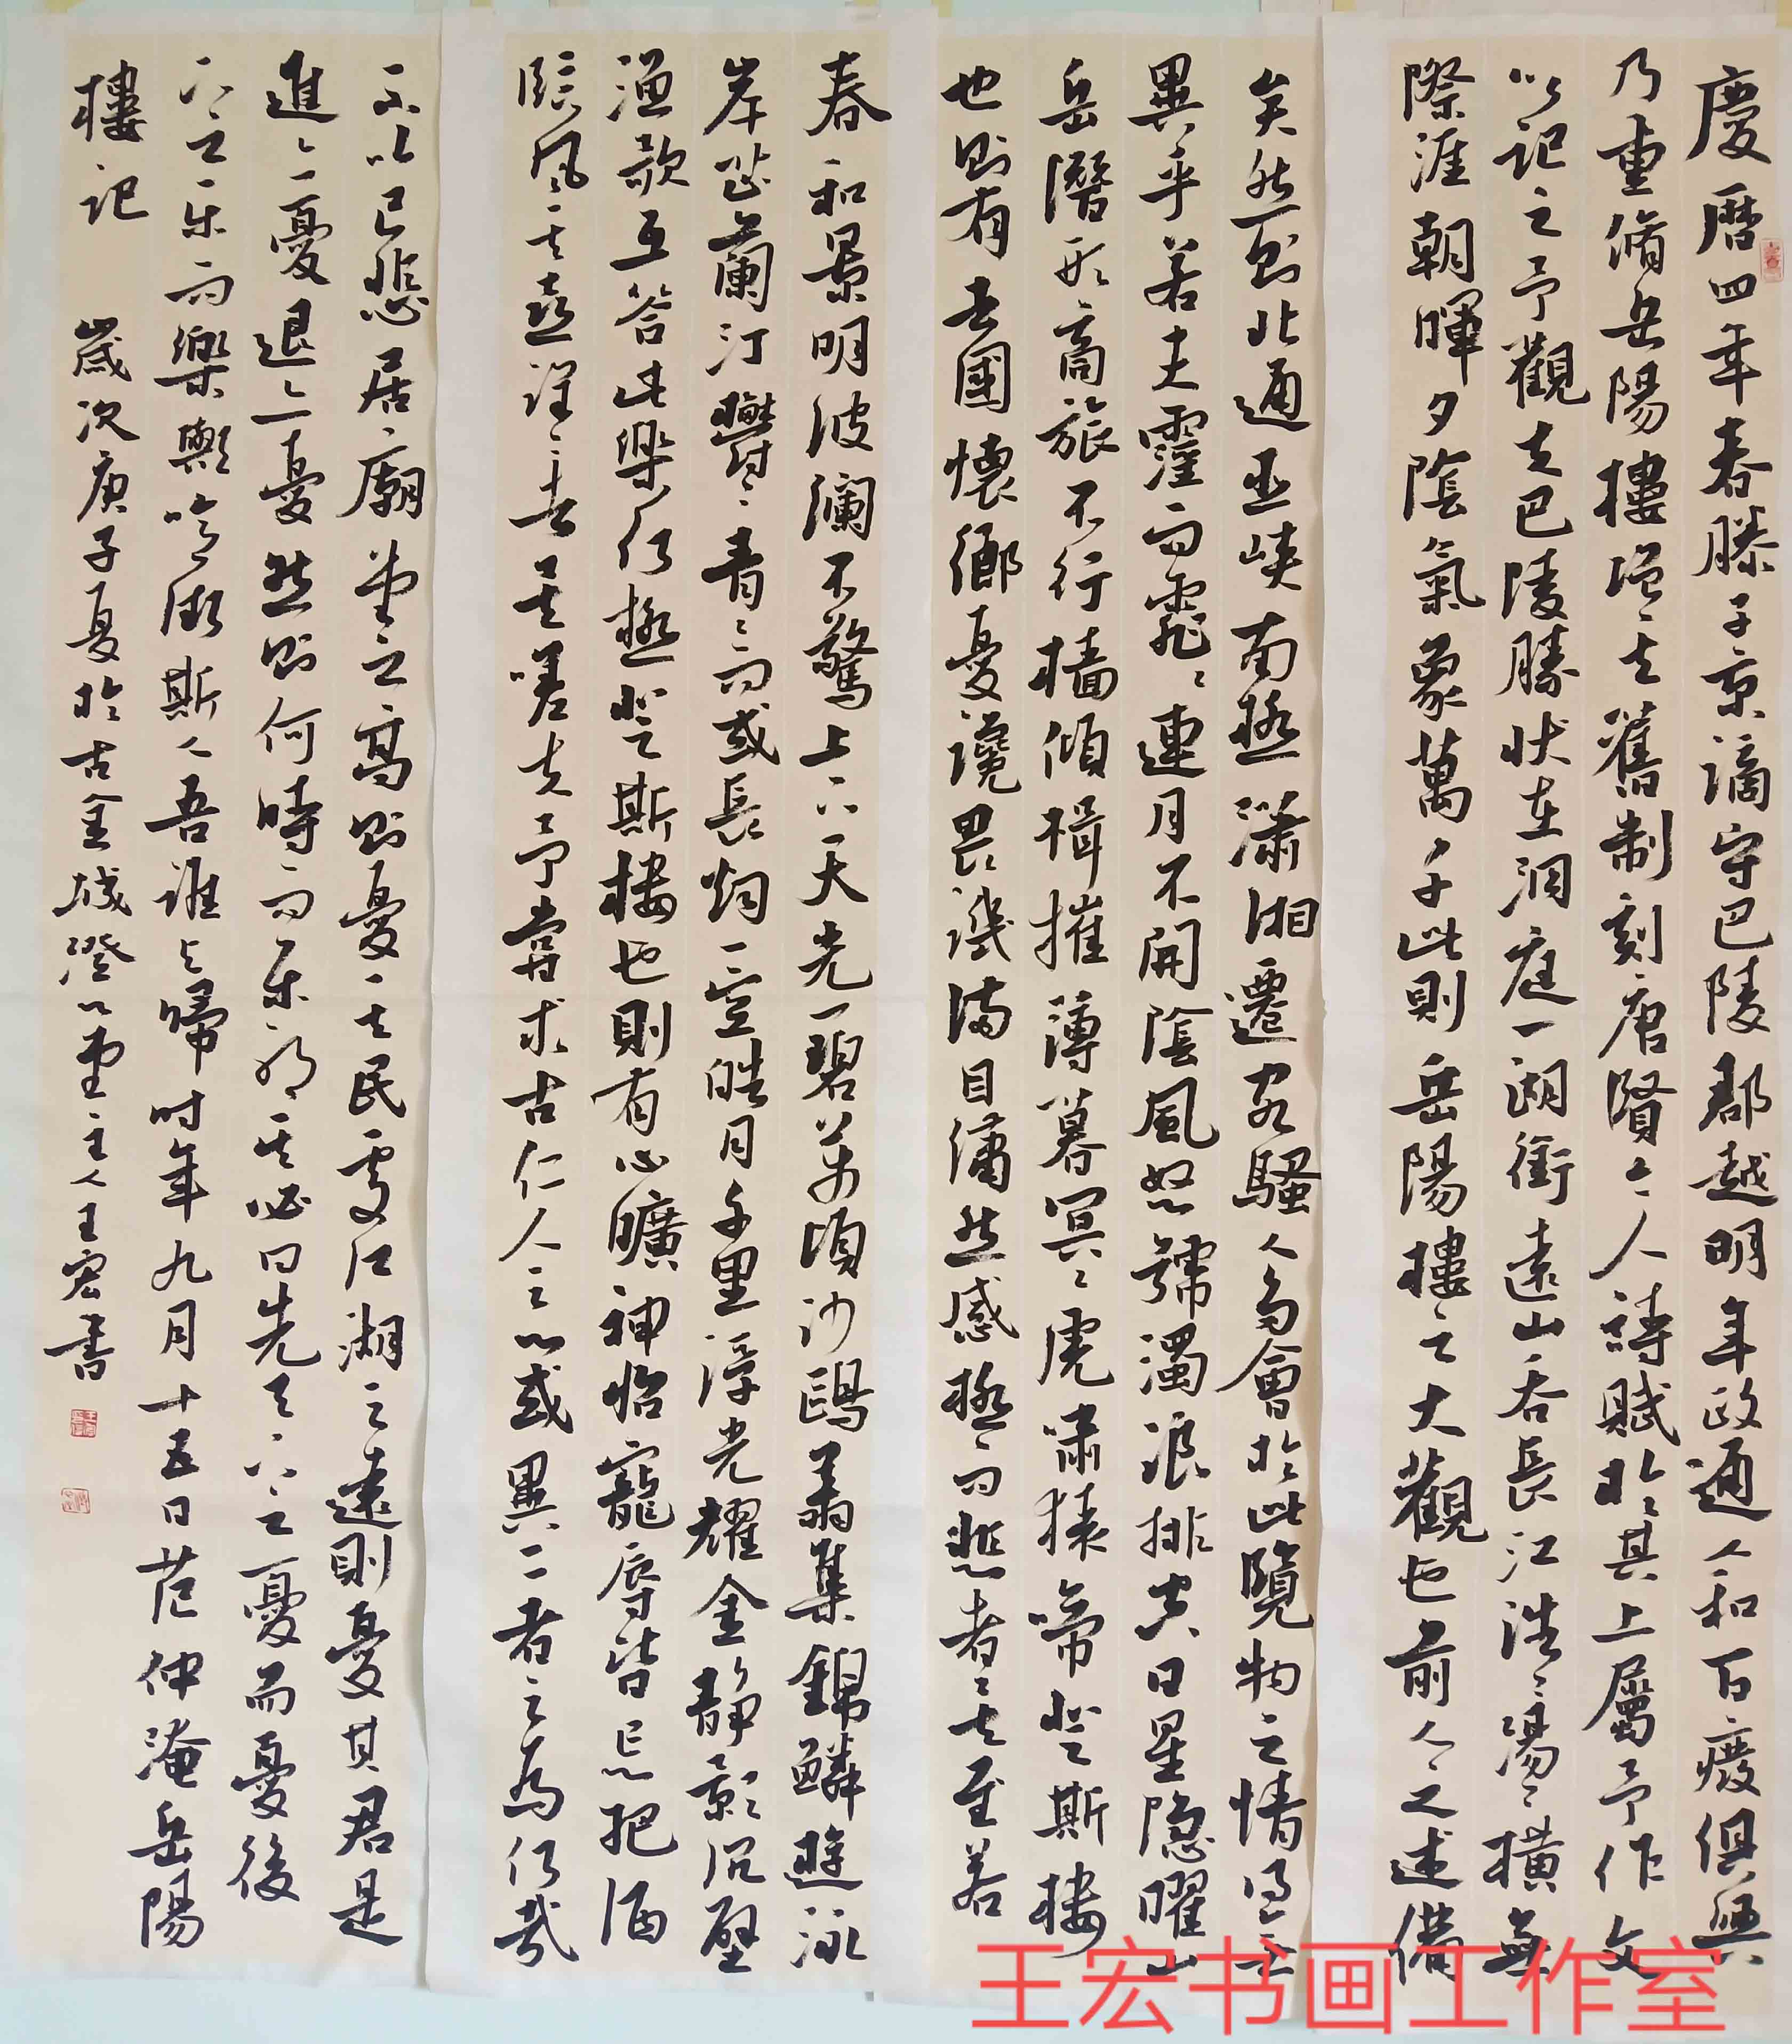 慶曆四年春滕子京謫守巴陵郡越明年政通人和百廢俱興
乃重脩岳陽樓增其舊制刻唐賢今人詩賦於其上屬予作文
以記之予觀夫巴陵勝狀在洞庭一湖銜遠山吞長江浩浩湯湯橫無
際涯朝暉夕陰氣象萬千此則岳陽樓之大觀也前人之述備
矣然則北通巫峽南極瀟湘遷客騷人多會於此覽物之情得無
異乎若夫霪雨霏霏連月不開陰風怒號濁浪排空日星隱曜山
岳潛形商旅不行檣傾楫摧薄暮冥冥虎嘯猿啼登斯樓
也則有去國懷鄉憂讒畏譏滿目蕭然感極而悲者矣至若
春和景明波瀾不驚上下天光一碧萬頃沙鷗翔集錦鱗遊泳
岸芷蘭汀鬱鬱青青而或長烟一空皓月千里浮光耀金靜影沉璧
漁歌互答此樂何極登斯樓也則有心曠神怡寵辱皆忘把酒
臨風其喜洋洋者矣嗟夫予嘗求古仁人之心或異二者之為何哉
不以己悲居廟堂之高則憂其民處江湖之遠則憂其君是
進亦憂退亦憂然則何時而樂耶其必曰先天下之憂而憂後
下之乐而樂歟噫微斯人吾誰與歸时年九月十五日范仲淹岳陽
樓記 歲次庚子夏於古金城澄心堂主人王宏書
王宏书画工作室